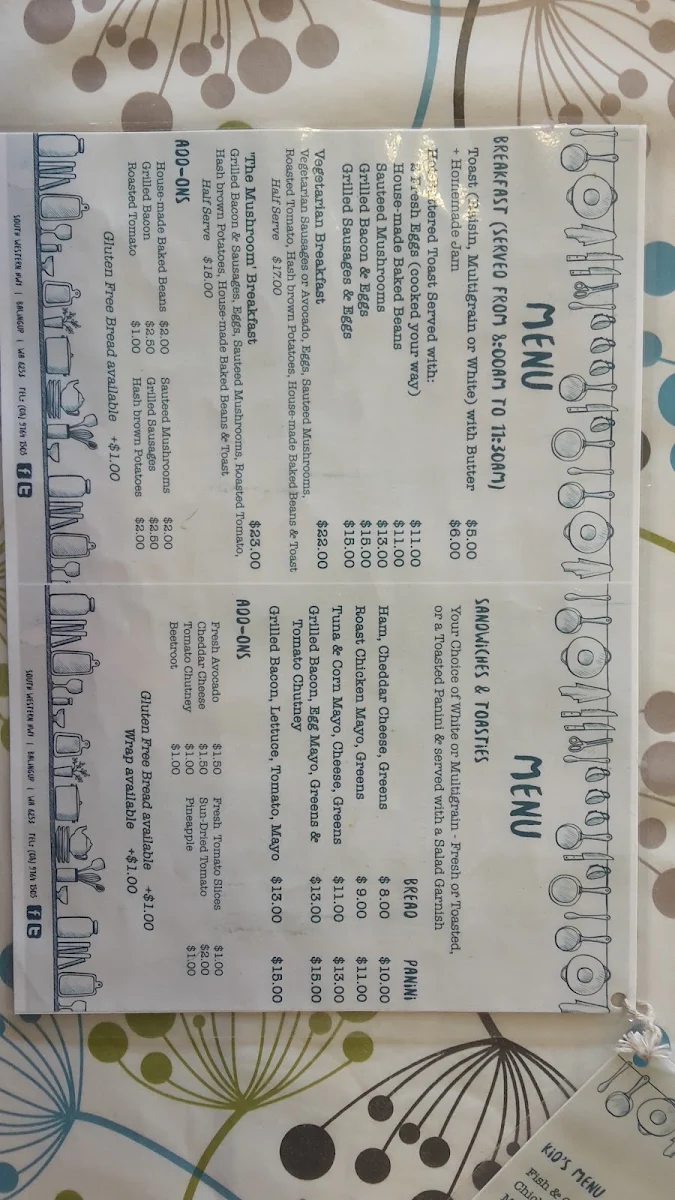 MENU
BREAKFAST (SERVED FROM 8:00AM TO 11:30AM)
Toast (Raisin, Multigrain or White) with Butter $5.00
+ Homemade Jam $6.00
Hot Buttered Toast Served with:
2 Fresh Eggs (cooked your way) $11.00
House-made Baked Beans $11.00
Sauteed Mushrooms $13.00
Grilled Bacon & Eggs $15.00
Grilled Sausages & Eggs $15.00
Vegetarian Breakfast $22.00
Vegetarian Sausages or Avocado, Eggs, Sauteed Mushrooms,
Roasted Tomato, Hash brown Potatoes, House-made Baked Beans & Toast
Half Serve $17.00
'The Mushroom' Breakfast $23.00
Grilled Bacon & Sausages, Eggs, Sauteed Mushrooms, Roasted Tomato,
Hash brown Potatoes, House-made Baked Beans & Toast
Half Serve $18.00
ADD-ONS
House-made Baked Beans $2.00 Sauteed Mushrooms $2.00
Grilled Bacon $2.50 Grilled Sausages $2.50
Roasted Tomato $1.00 Hash brown Potatoes $2.00
Gluten Free Bread available +$1.00
SOUTH WESTERN HWY | BALINGUP | WA 6253 TEL: (08) 9764 1505
MENU
SANDWICHES & TOASTIES
Your Choice of White or Multigrain - Fresh or Toasted,
or a Toasted Panini & served with a Salad Garnish
BREAD PANINI
Ham, Cheddar Cheese, Greens $ 8.00 $10.00
Roast Chicken Mayo, Greens $ 9.00 $11.00
Tuna & Corn Mayo, Cheese, Greens $11.00 $13.00
Grilled Bacon, Egg Mayo, Greens &
Tomato Chutney $13.00 $15.00
Grilled Bacon, Lettuce, Tomato, Mayo $13.00 $15.00
ADD-ONS
Fresh Avocado $1.50 Fresh Tomato Slices $1.00
Cheddar Cheese $1.50 Sun-Dried Tomato $2.00
Tomato Chutney $1.00 Pineapple $1.00
Beetroot $1.00
Gluten Free Bread available +$1.00
Wrap available +$1.00
SOUTH WESTERN HWY | BALINGUP | WA 6253 TEL: (08) 9764 1505
KID'S MENU
Fish &